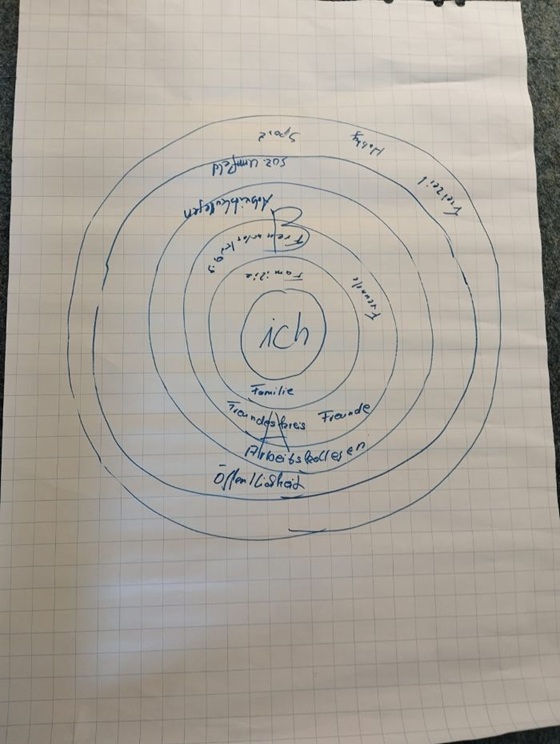 Sport
Hobby
Freizeit
soz. Umfeld
Arbeitskollegen
B
Freundeskreis
Freunde
Familie
ich
Familie
Freundeskreis Freunde
A
Arbeitskollegen
Öffentlichkeit